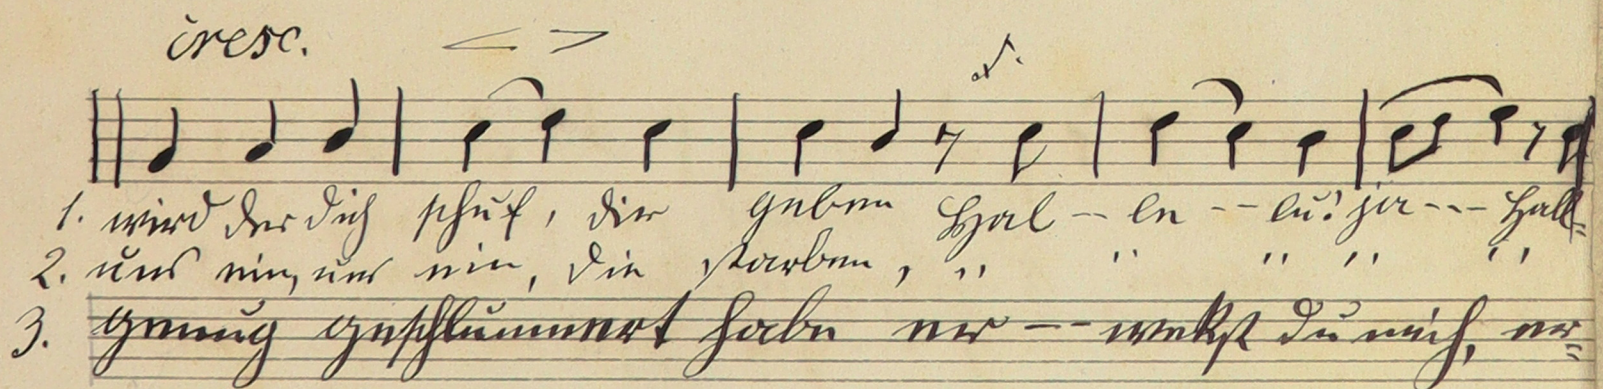 cresc.
1. wird der dich schuf, dir geben Hal -- le -- lu! ja --- Hall=
2. uns ein, uns ein, die starben, „ " " " "
3. genug geschlummert habe er -- wekst du mich, er=